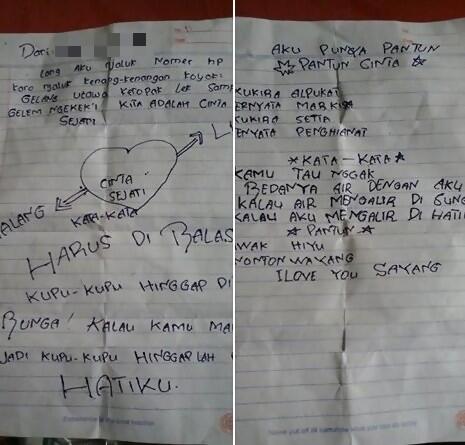 Dari:
Long AKU NJALUK Nomer HP
Karo NJALUK kenang-kenangan koyok:
GELANG utowo KETOPAK LEK
GELEM NGEKEK'I KITA ADALAH CINTA
SEJATI
CINTA
SEJATI
ALANG
KATA-KATA
HARUS DI BALAS
KUPU-KUPU HINGGAP DI
BUNGA' KALAU KAMU MA
JADI KUPU-KUPU HINGGAPLAH
HATIKU.
AKU PUNYA PANTUN
PANTUN CINTA
KUKIRA ALPUKAT
ERNYATA MARKISA
KUKIRA SETIA
ENYATA PENGHIANAT
KATA-KATA
KAMU TAU NGGAK
BEDANYA AIR DENGAN AKU
KALAU AIR MENGALIR DI SUNG
KALAU AKU MENGALIR DI HATI
PANTUN
WAK HIYU
NONTON WAYANG
I LOVE YOU SAYANG